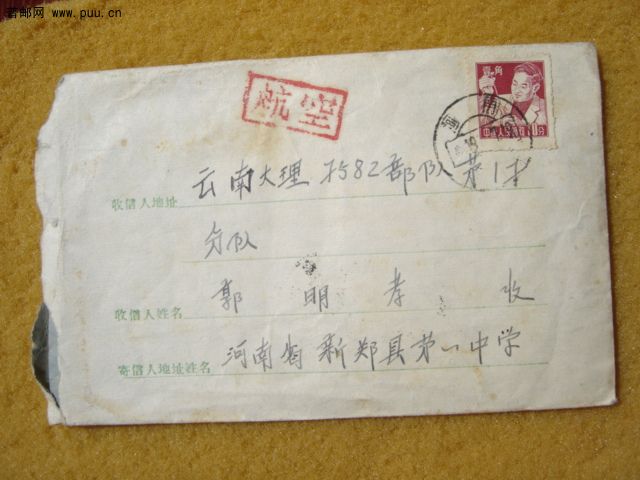 若邮网 www.puu.cn
航空
壹角
收信人地址 云南大理7582部队第1才
分队
收信人姓名 郭明孝 收
寄信人地址姓名 河南省新郑县第一中学